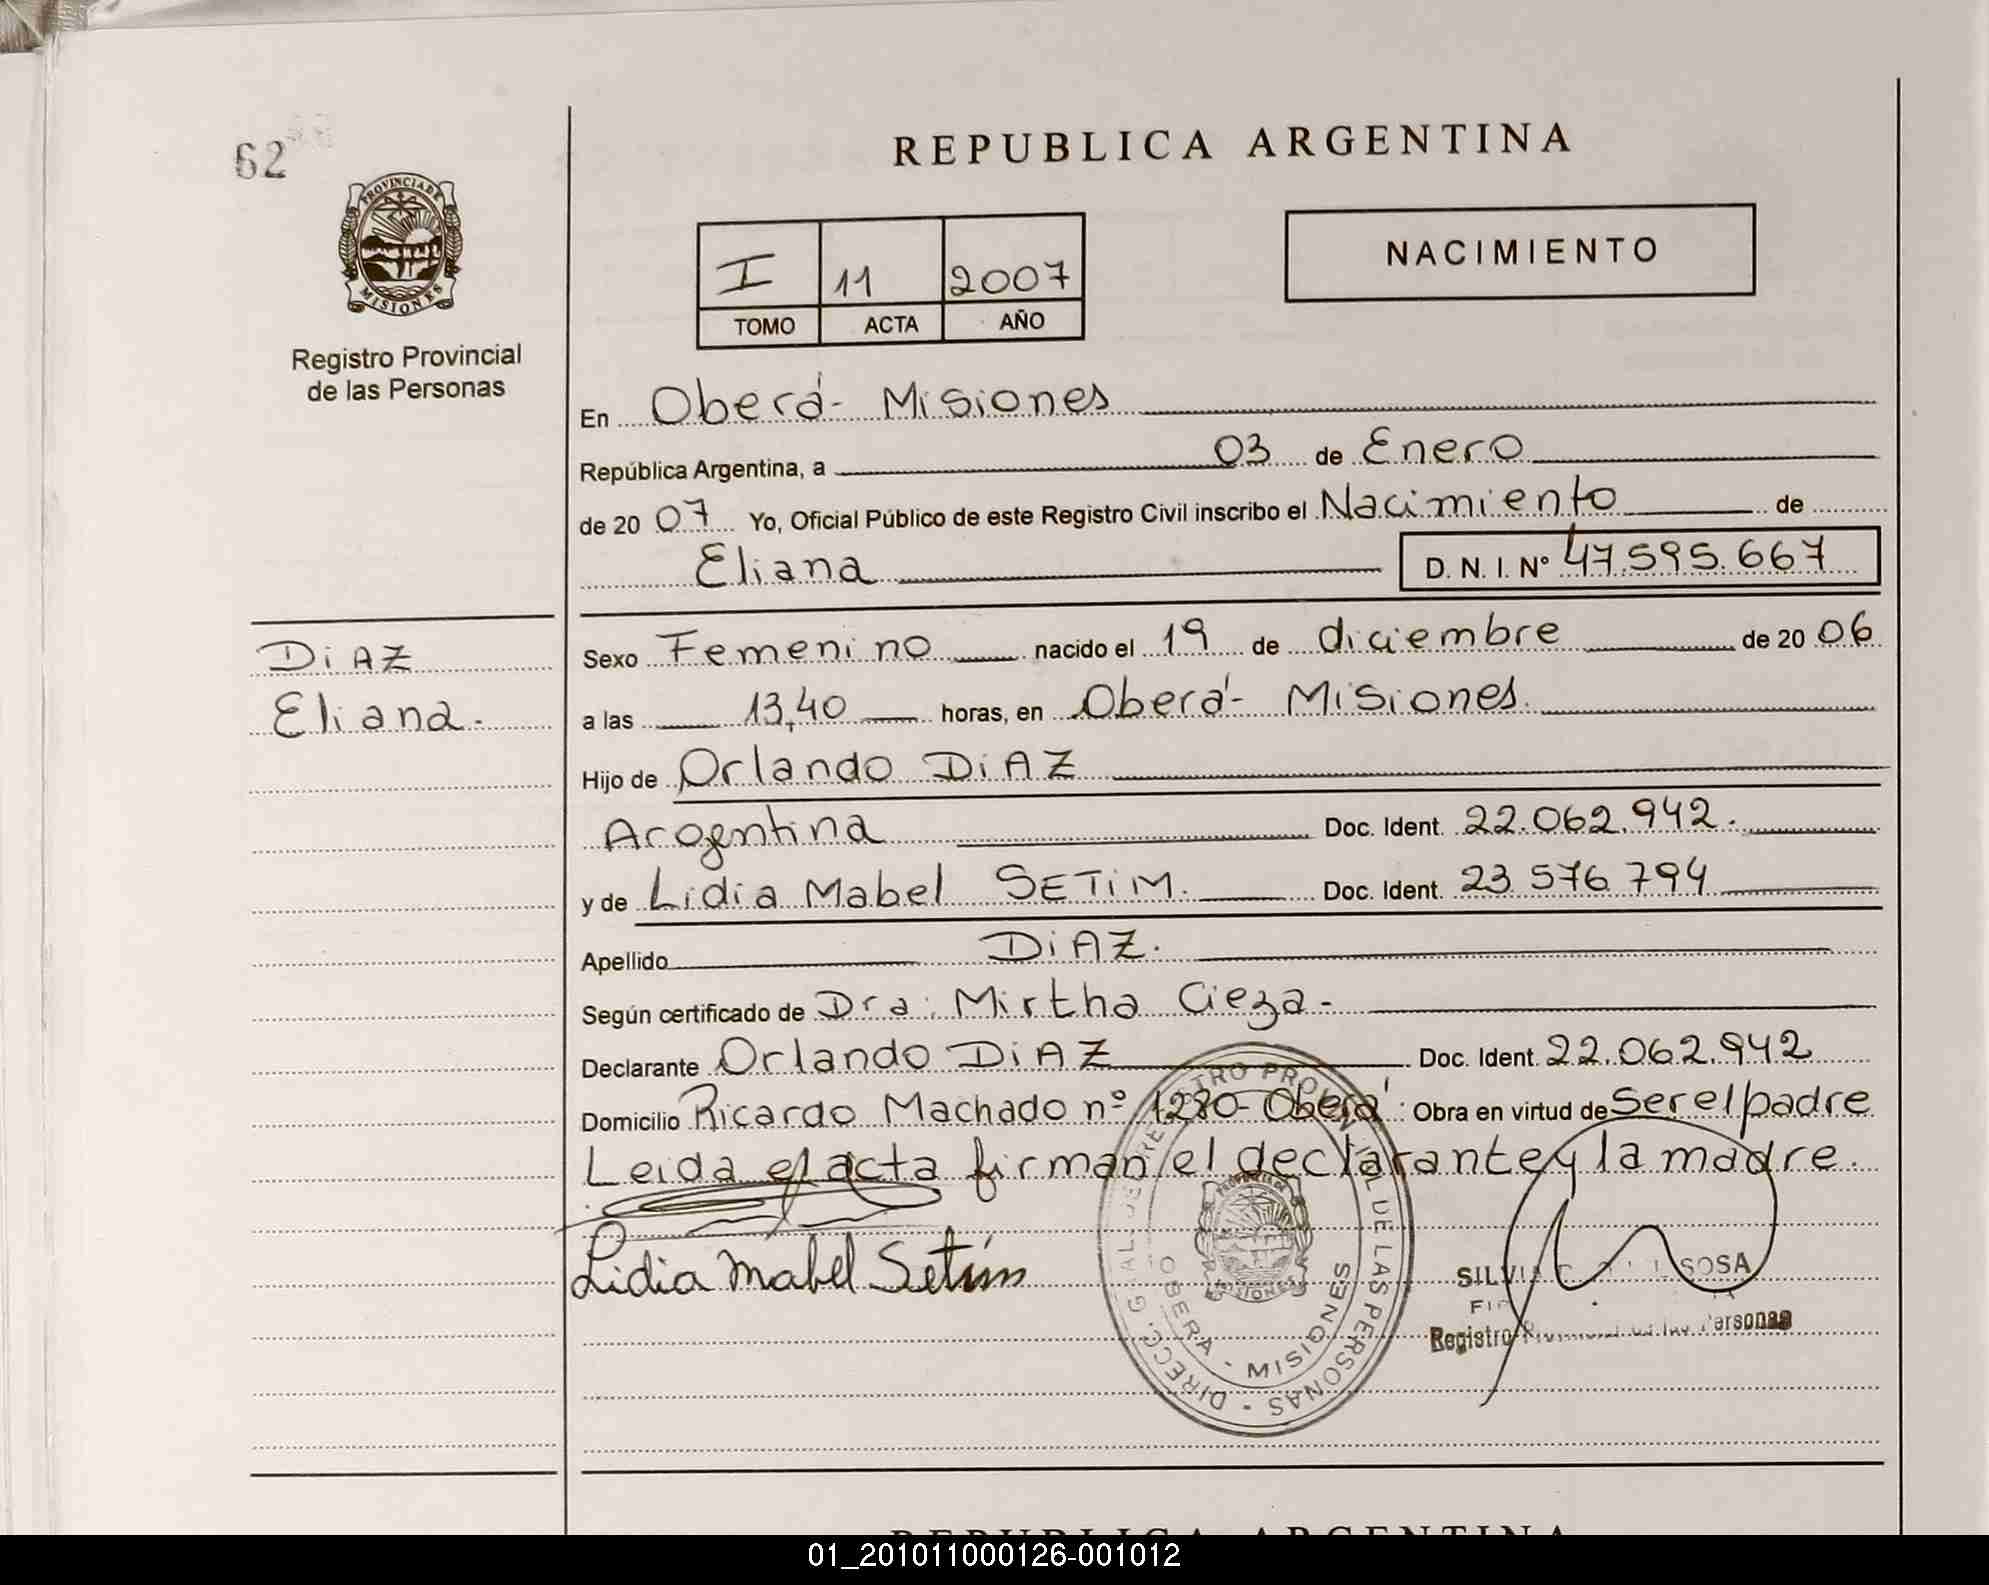 62
PROVINCIA DE
MISIONES
Registro Provincial
de las Personas
REPUBLICA ARGENTINA
I 11 2007
TOMO ACTA AÑO
NACIMIENTO
En Oberá - Misiones
República Argentina, a 03 de Enero
de 20 07 Yo, Oficial Público de este Registro Civil inscribo el Nacimiento de
Eliana D. N. I. Nº 47.595.667
DiAZ
Eliana.-
Sexo Femenino nacido el 19 de diciembre de 20 06
a las 13,40 horas, en Oberá - Misiones.
Hijo de Orlando DiAZ
Argentina Doc. Ident. 22.062.942.
y de Lidia Mabel SETiM. Doc. Ident. 23.576.794
Apellido DiAZ.
Según certificado de Dra: Mirtha Cieza-
Declarante Orlando DiAZ Doc. Ident. 22.062.942
Domicilio Ricardo Machado nº 1280- Oberá. Obra en virtud de Ser el padre
Leida el acta firman el declarante y la madre.
Lidia Mabel Setim
DIRECC. GRAL. DE REGISTRO PROVINCIAL DE LAS PERSONAS -
OBERA - MISIONES
SOSA
Registro Personas
REPUBLICA ARGENTINA
01_201011000126-001012